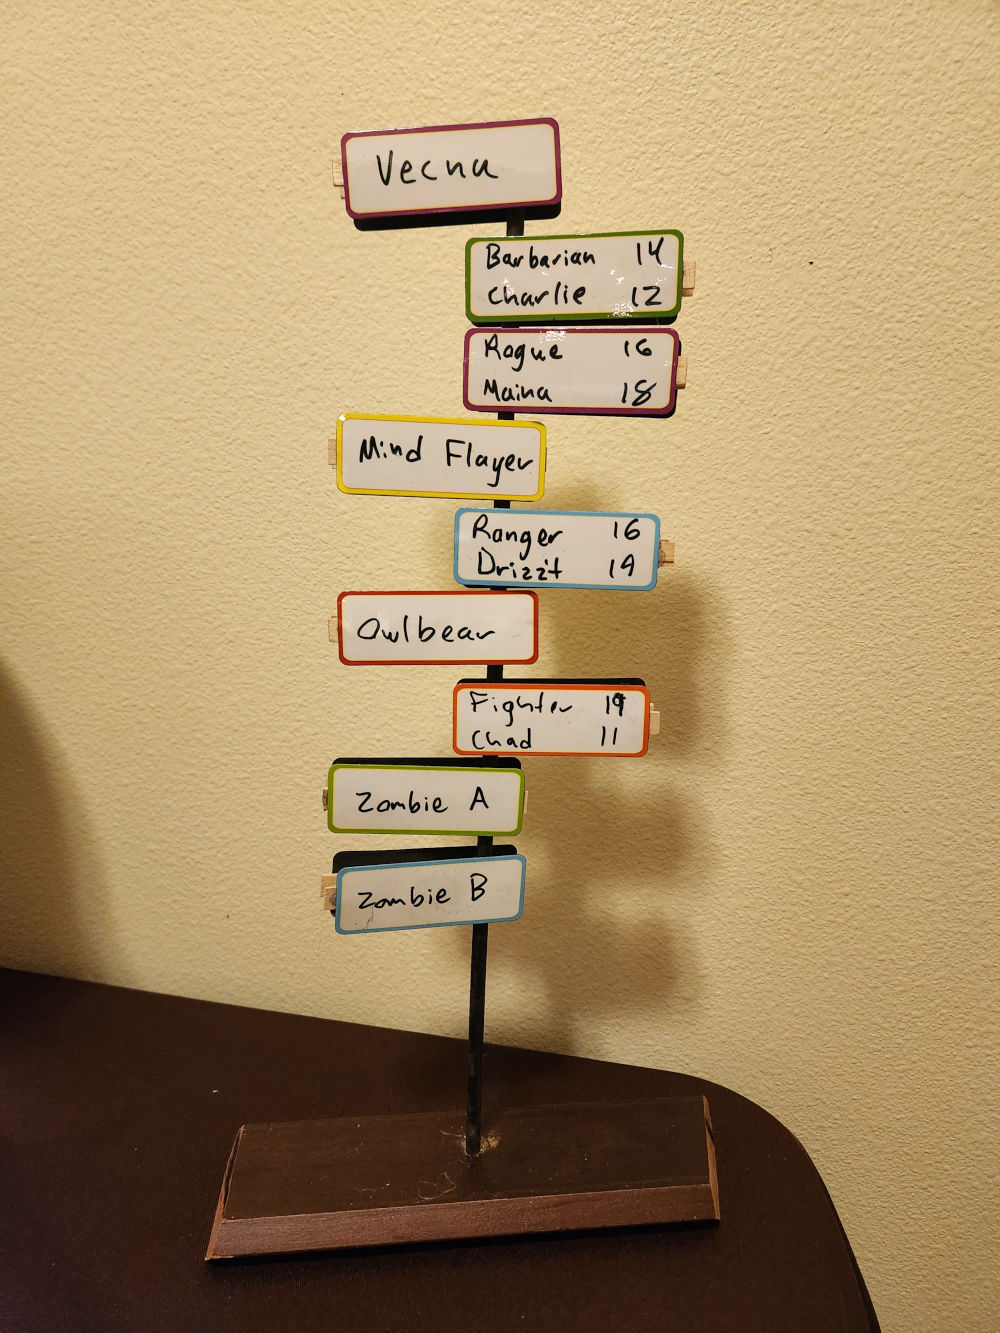 Vecna
Barbarian 14
Charlie 12
Rogue 16
Maina 18
Mind Flayer
Ranger 16
Drizzt 19
Owlbear
Fighter 19
Chad 11
Zombie A
Zombie B